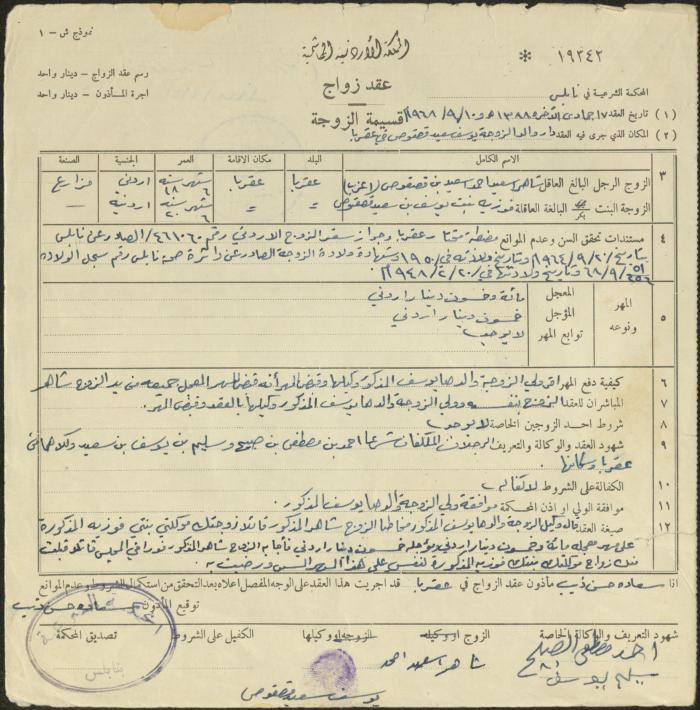 نموذج ش - ١
المملكة الأردنية الهاشمية
١٩٣٤٢ *
رسم عقد الزواج - دينار واحد
عقد زواج
المحكمة الشرعية في نابلس
اجرة المأذون - دينار واحد
(١) تاريخ العقد ١٧ جمادى الآخرة ١٣٨٨هـ و ١٠/٩/١٩٦٨م قسيمة الزوجة
(٢) المكان الذي جرى فيه العقد دار والد الزوجة يوسف سعيد في عقربا
الاسم الكامل البلد مكان الاقامة العمر الجنسية الصنعة
٣ الزوج الرجل البالغ العاقل شاهر اسعيد احمد سعيد بن (اعزب) عقربا عقربا اردني مزارع
الزوجة البنت بكر البالغة العاقلة فوزيه بنت يوسف بن سعيد = = اردنية —
٤ مستندات تحقق السن وعدم الموانع مضبطة مختار عقربا وجواز سفر الزوج الاردني رقم ٤٦١٠٦٠ الصادر عن نابلس
بتاريخ ٢٠/٩/١٩٦٤ وتاريخ ولادته في ١٩٥٠ وشهادة ولادة الزوجة الصادر عن دائرة صحة نابلس رقم سجل الولاده
وتاريخ ولادتها في ٢٠/٢/١٩٤٨م
٥ المهر ونوعه
المعجل مائة وخمسون دينار اردني
المؤجل خمسون دينار اردني
توابع المهر لا يوجد
٦ كيفية دفع المهر ولي الزوجة والدها يوسف المذكور وكيلها وقبض المهر المعجل جميعه من يد الزوج شاهر
٧ المباشران للعقد الزوج بنفسه وولي الزوجة والدها يوسف المذكور وكيلها بالعقد وقبض المهر
٨ شروط احد الزوجين الخاصة لا يوجد
٩ شهود العقد والوكالة والتعريف الرجلان المكلفان شرعا احمد بن مصطفى بن وسليم بن يوسف بن سعيد وكلاهما من
عقربا وسكانها.
١٠ الكفالة على الشروط لا كفاله
١١ موافقة الولي او اذن المحكمة موافقة ولي الزوجة والدها يوسف المذكور.
١٢ صيغة العقد قال وكيل الزوجة والدها يوسف المذكور مخاطبا الزوج شاهر المذكور قائلا زوجتك موكلتي بنتي فوزيه المذكورة
على مهر معجله مائة وخمسون دينار اردني ومؤجله خمسون دينار اردني فأجابه الزوج شاهر المذكور فورا في المجلس قائلا قبلت
منك زواج موكلتك بنتك فوزيه المذكورة لنفسي على هذا المهر ورضيت به
انا سعاده حسن ذيب مأذون عقد الزواج في عقربا قد اجريت هذا العقد على الوجه المفصل اعلاه بعد التحقق من استكمال الشروط وعدم الموانع
توقيع المأذون سعاده حسن ذيب
شهود التعريف والوكالة الخاصة الزوج او وكيله الزوجة او وكيلها الكفيل على الشروط تصديق المحكمة
احمد مصطفى
شاهر اسعيد احمد
سليم يوسف
يوسف سعيد
بنابلس